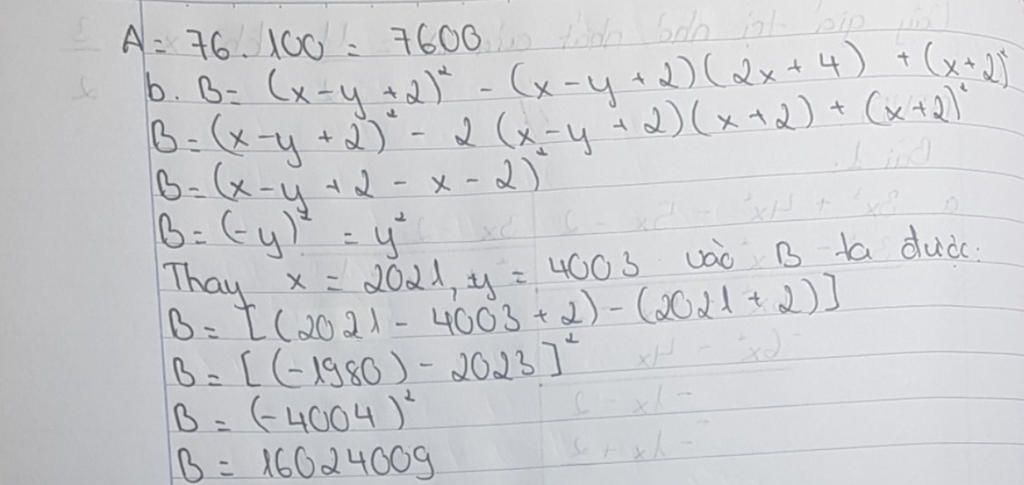 A = 76 . 100 = 7600
b. B = (x - y + 2)² - (x - y + 2)(2x + 4) + (x + 2)²
B = (x - y + 2)² - 2 (x - y + 2)(x + 2) + (x + 2)²
B = (x - y + 2 - x - 2)²
B = (-y)² = y²
Thay x = 2021, y = 4003 vào B ta được:
B = [(2021 - 4003 + 2) - (2021 + 2)]
B = [(-1980) - 2023]²
B = (-4004)²
B = 16024009